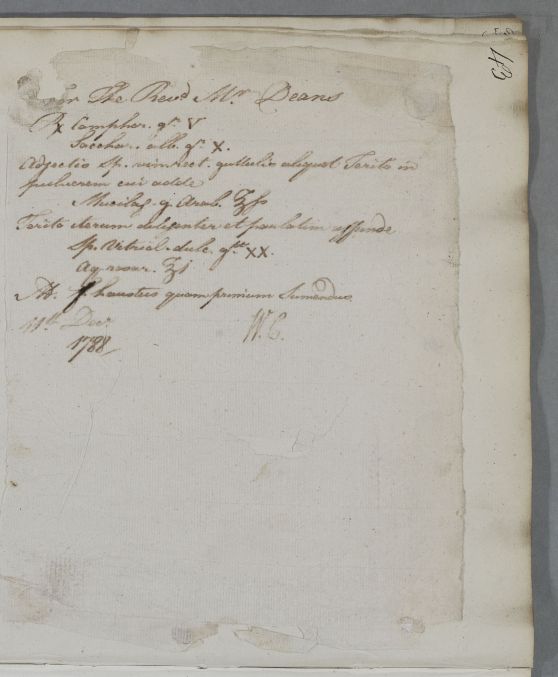 43
For The Revd Mr Deans
℞ Camphor. gr V
Sacchar. alb. gr. X.
Adjectis Sp. vin. rect. guttulis aliquot Terito in
pulverem cui adde
Mucilag. g. Arab. ʒſs
Terito iterum diligenter et paulatim affunde
Sp. Vitriol. dulc. gtt XX.
Aq. rosar. ʒi
ft. haustus quamprimum Sumendus
11th Decr
W. C.
1788